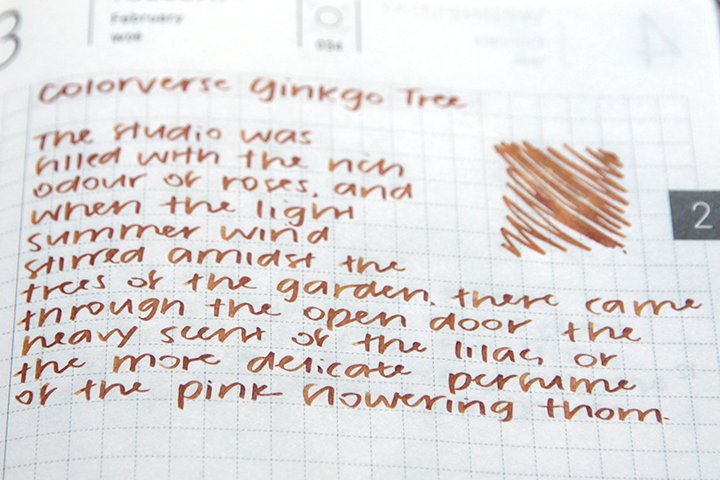 3
February
W08
054
4
Colorverse Ginkgo Tree
The studio was
filled with the rich
odour of roses, and
when the light
summer wind
stirred amidst the
trees of the garden, there came
through the open door the
heavy scent of the lilac, or
the more delicate perfume
of the pink flowering thorn.
2